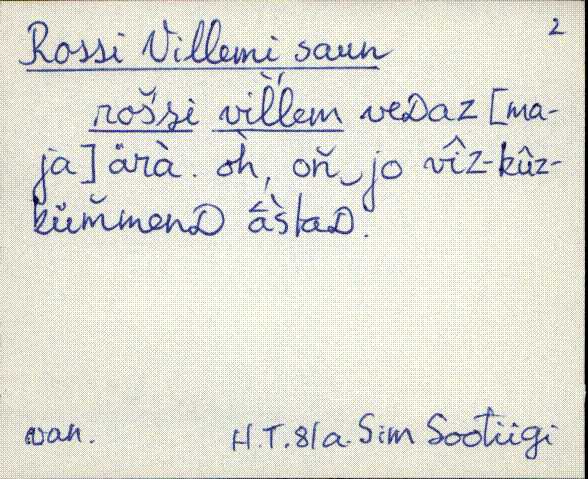 2
Rossi Villemi saun
rošsi vil̆lem veDaz [ma-
ja] ärà. òh, on̆‿jo vîz-kûz-
kŭm̆menD âs̀taD.
van. H.T. 81a. Sim Sootiigi